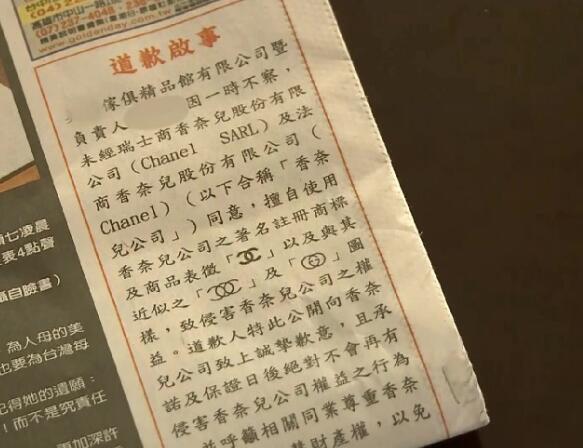 (07)237-4048
www.goldenday.com.tw
道歉啟事
傢俱精品館有限公司暨
負責人 因一時不察，
未經瑞士商香奈兒股份有限
公司（Chanel SARL）及法
商香奈兒股份有限公司（
Chanel）（以下合稱「香奈
兒公司」）同意，擅自使用
香奈兒公司之著名註冊商標
及商品表徵「」以及與其
近似之「」及「」圖
樣，致侵害香奈兒公司之權
益。道歉人特此公開向香奈
兒公司致上誠摯歉意，且承
諾及保證日後絕對不會再有
侵害香奈兒公司權益之行為
並呼籲相關同業尊重香奈
慧財產權，以免
七凌晨
表4點聲
自臉書）
為人母的美
也要為台灣每
記得她的遺願：
！而不是究責任
更加深許